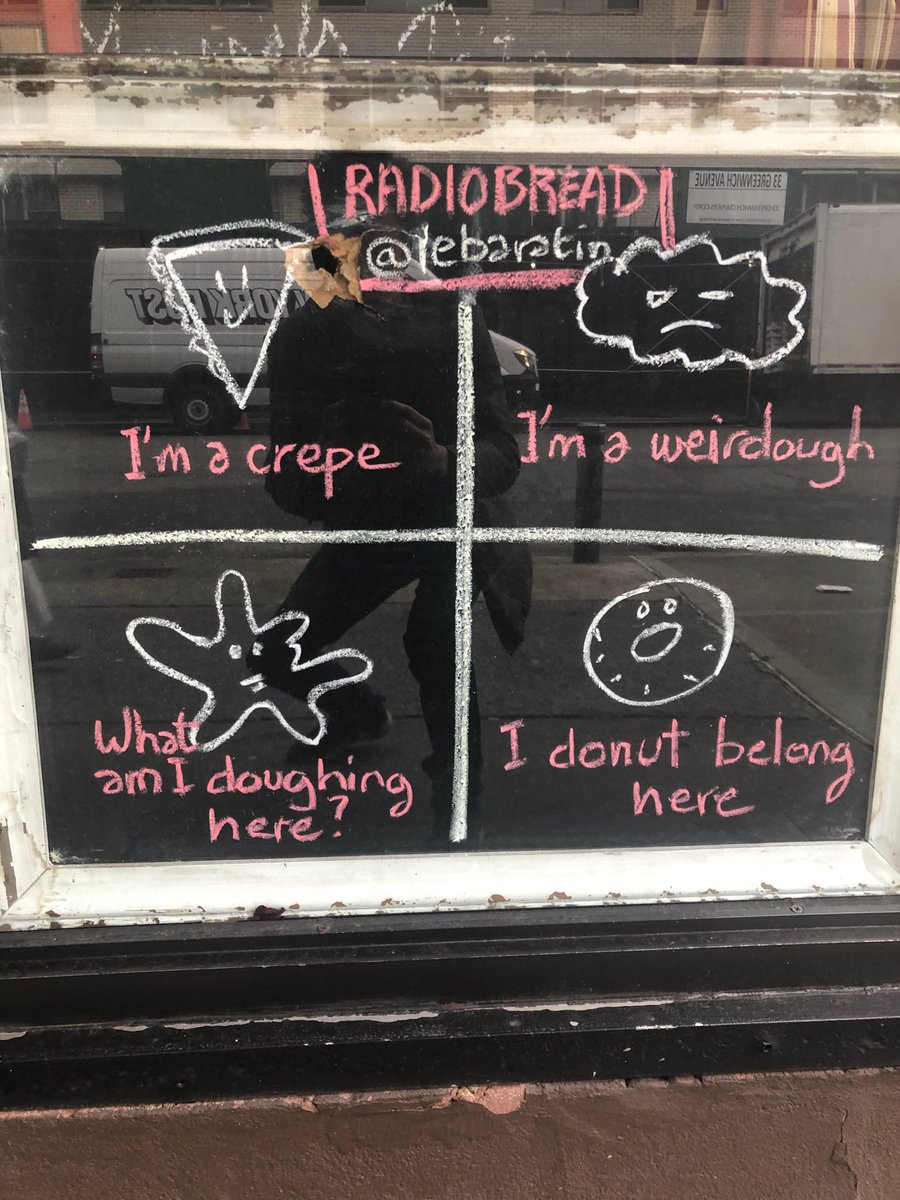 RADIOBREAD
@lebaratin
33 GREENWICH AVENUE
33 GREENWICH OWNERS CORP.
YORK POST
I'm a crepe
I'm a weirdough
What
am I doughing
here?
I donut belong
here